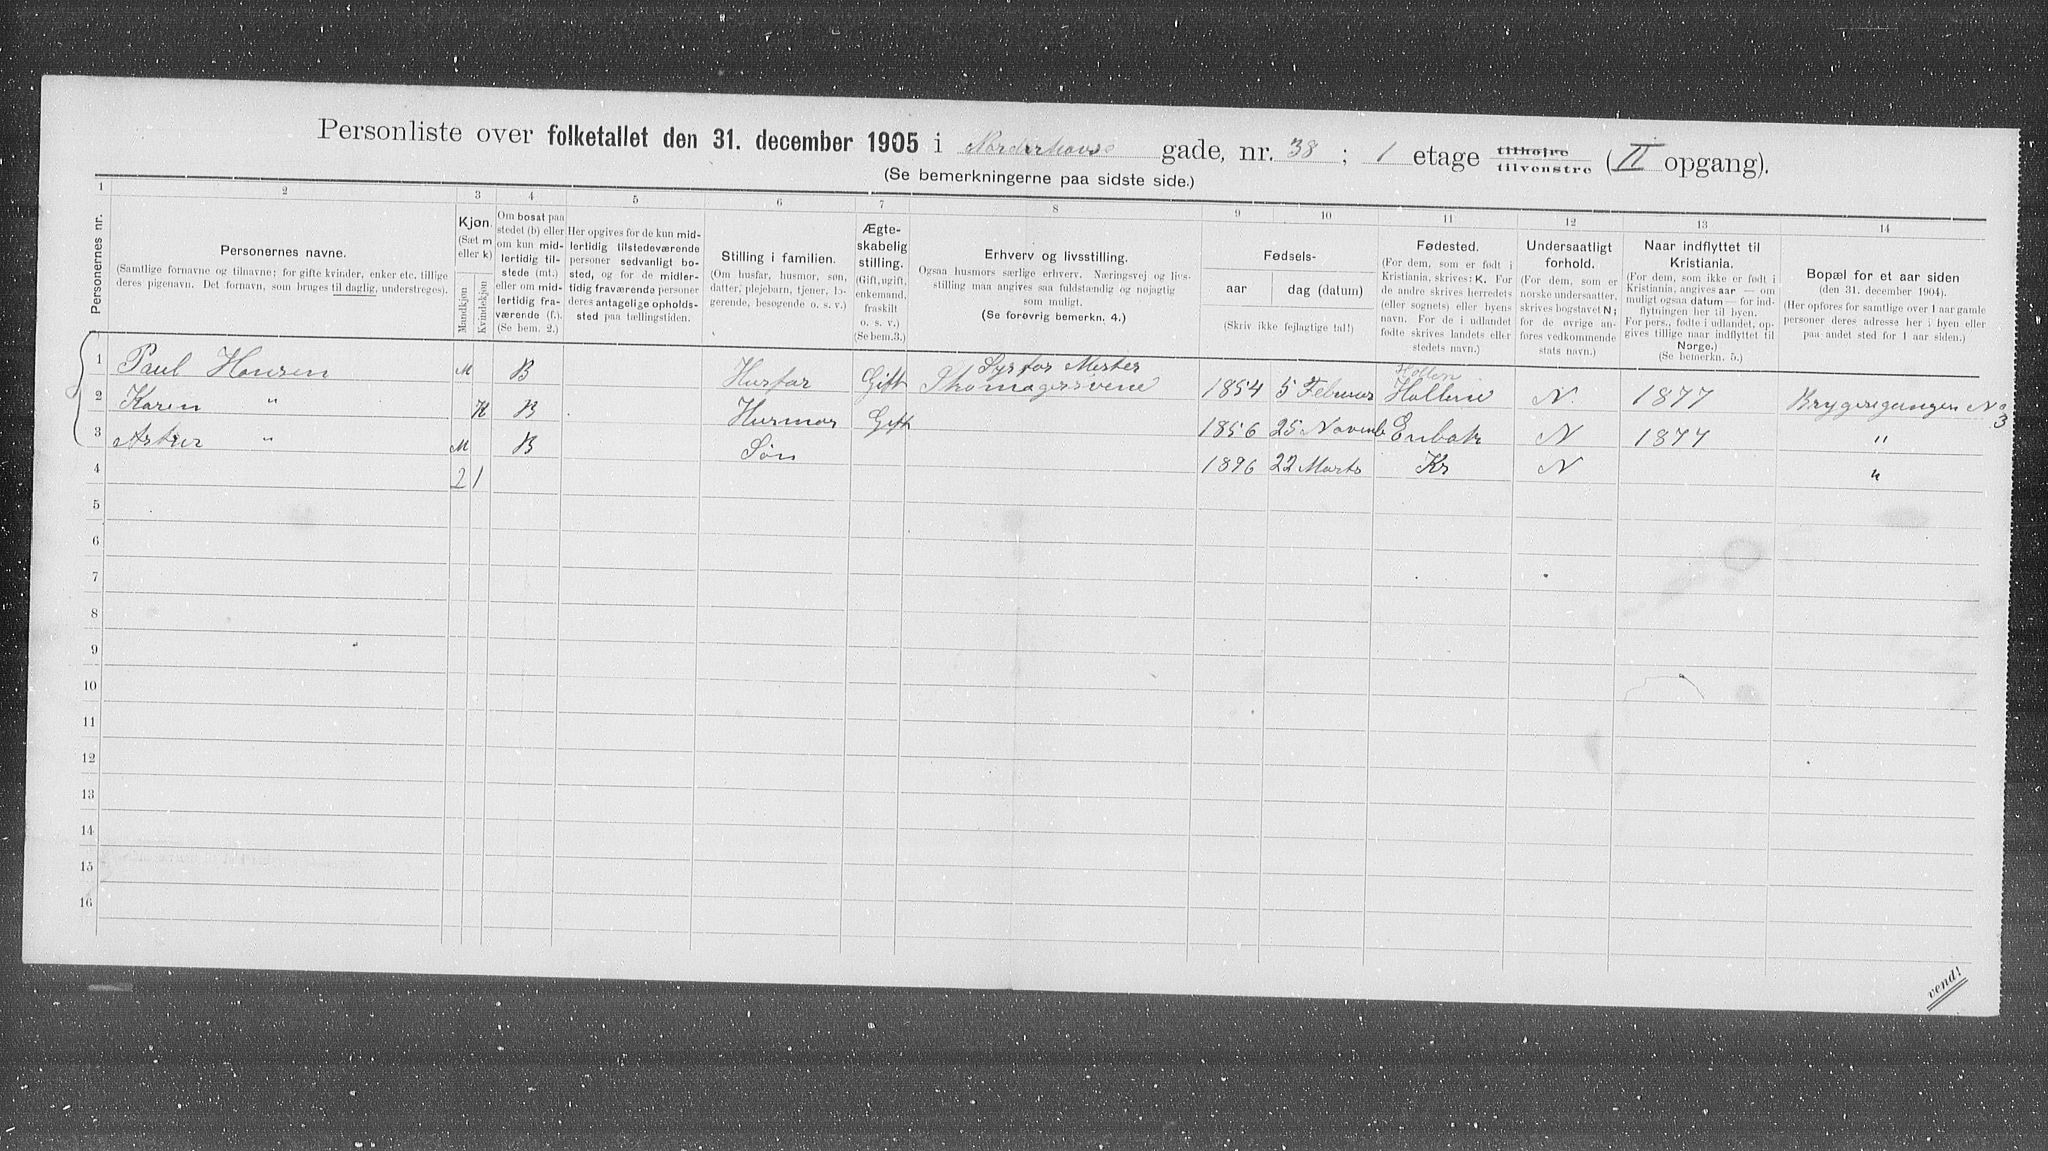 Personliste over folketallet den 31. december 1905 i Norderhovs gade, nr. 38 ; 1 etage tilhøjre tilvenstre (II opgang).
(Se bemerkningerne paa sidste side.)
1 2 3 4 5 6 7 8 9 10 11 12 13 14
Personernes nr.
Personernes navne.
(Samtlige fornavne og tilnavne; for gifte kvinder, enker etc. tillige deres pigenavn. Det fornavn, som bruges til daglig, understreges).
Kjøn.
(Sæt m eller k)
Mandkjøn
Kvindekjøn
Om bosat paa stedet (b) eller om kun midlertidig tilstede (mt.) eller om midlertidig fraværende (f.). (Se bem. 2.)
Her opgives for de kun midlertidig tilstedeværende personer sedvanligt bosted, og for de midlertidig fraværende personer deres antagelige opholdssted paa tællingstiden.
Stilling i familien.
(Om husfar, husmor, søn, datter, plejebarn, tjener, logerende, besøgende o. s. v.)
Ægteskabelig stilling.
(Gift, ugift, enkemand, fraskilt o. s. v.)
(Se bem. 3.)
Erhverv og livsstilling.
Ogsaa husmors særlige erhverv. Næringsvej og livsstilling maa angives saa fuldstændig og nøjagtig som muligt.
(Se forøvrig bemerkn. 4.)
Fødsels-
aar
dag (datum)
(Skriv ikke fejlagtige tal!)
Fødested.
(For dem, som er født i Kristiania, skrives: K. For de andre skrives herredets (eller sognets) eller byens navn. For de i udlandet fødte skrives landets eller stedets navn.)
Undersaatligt forhold.
(For dem, som er norske undersaatter, skrives bogstavet N; for de øvrige anføres vedkommende stats navn.)
Naar indflyttet til Kristiania.
(For dem, som ikke er født i Kristiania, angives aar — om muligt ogsaa datum — for indflytningen her til byen. For pers., fødte i udlandet, opgives tillige naar indflyttet til Norge.)
(Se bemerkn. 5.)
Bopæl for et aar siden
(den 31. december 1904).
(Her opføres for samtlige over 1 aar gamle personer deres adresse her i byen eller paa andet sted for 1 aar siden.)
Mester
Hollen
1 Paul Hansen M B Husfar Gift 1854 5 Februar N 1877 Bryggerigangen No 3
2 Karen " K B Husmor Gift 1856 25 Novemb N 1877 "
3 M B Søn 1896 22 Marts Kr N "
4 2 1
5
6
7
8
9
10
11
12
13
14
15
16
vend!